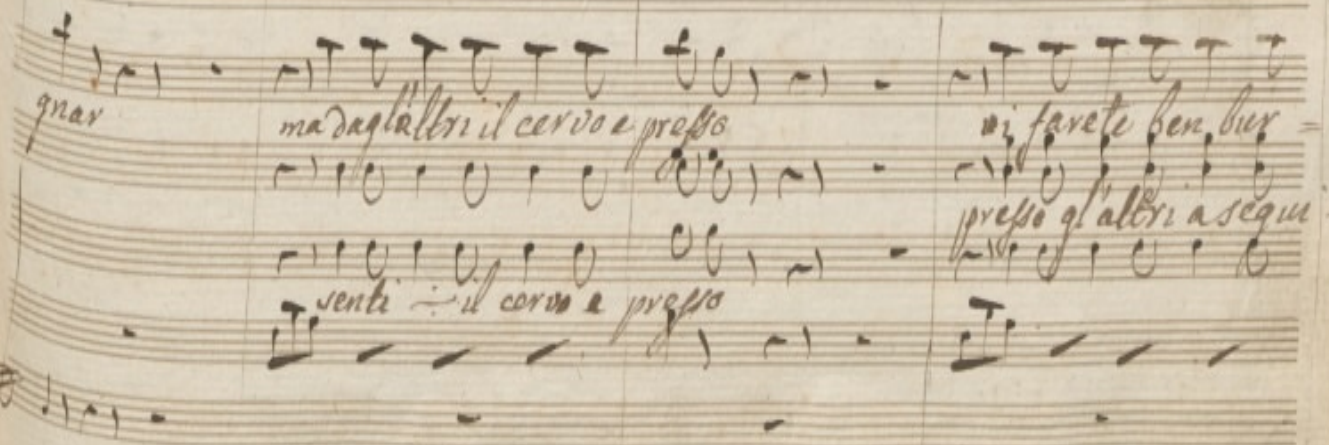 gnar ma dagl'altri il cervo e presso vi farete ben bur =
presso gl'altri a segui
senti il cervo e presso